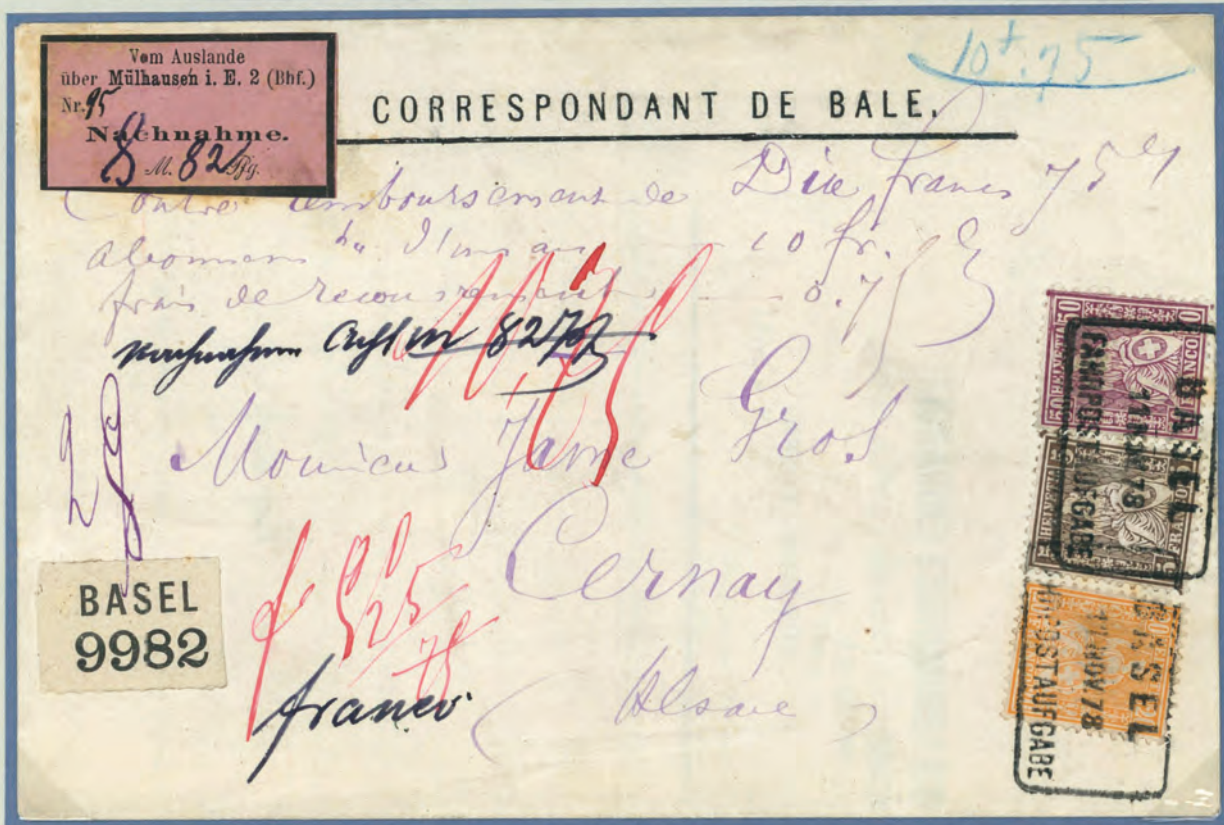 Vom Auslande
über Mülhausen i. E. 2 (Bhf.)
Nr. 95
Nachnahme.
8 M. 82 Pfg.
10f.75
CORRESPONDANT DE BALE.
Contre remboursement de Dix francs 75 cs
abonnem nt d'un an — 10 fr.
frais de recouvrement — 0.75
10,75
Nachnahme Acht M 82 Pf
Monsieur Jame Gros
Cernay
(Alsace)
BASEL
9982
franco
50 HELVETIA 50
FRANCO
BASEL
11 NOV 78
FAHRPOSTAUFGABE
BASEL
11 NOV. 78
FAHRPOSTAUFGABE